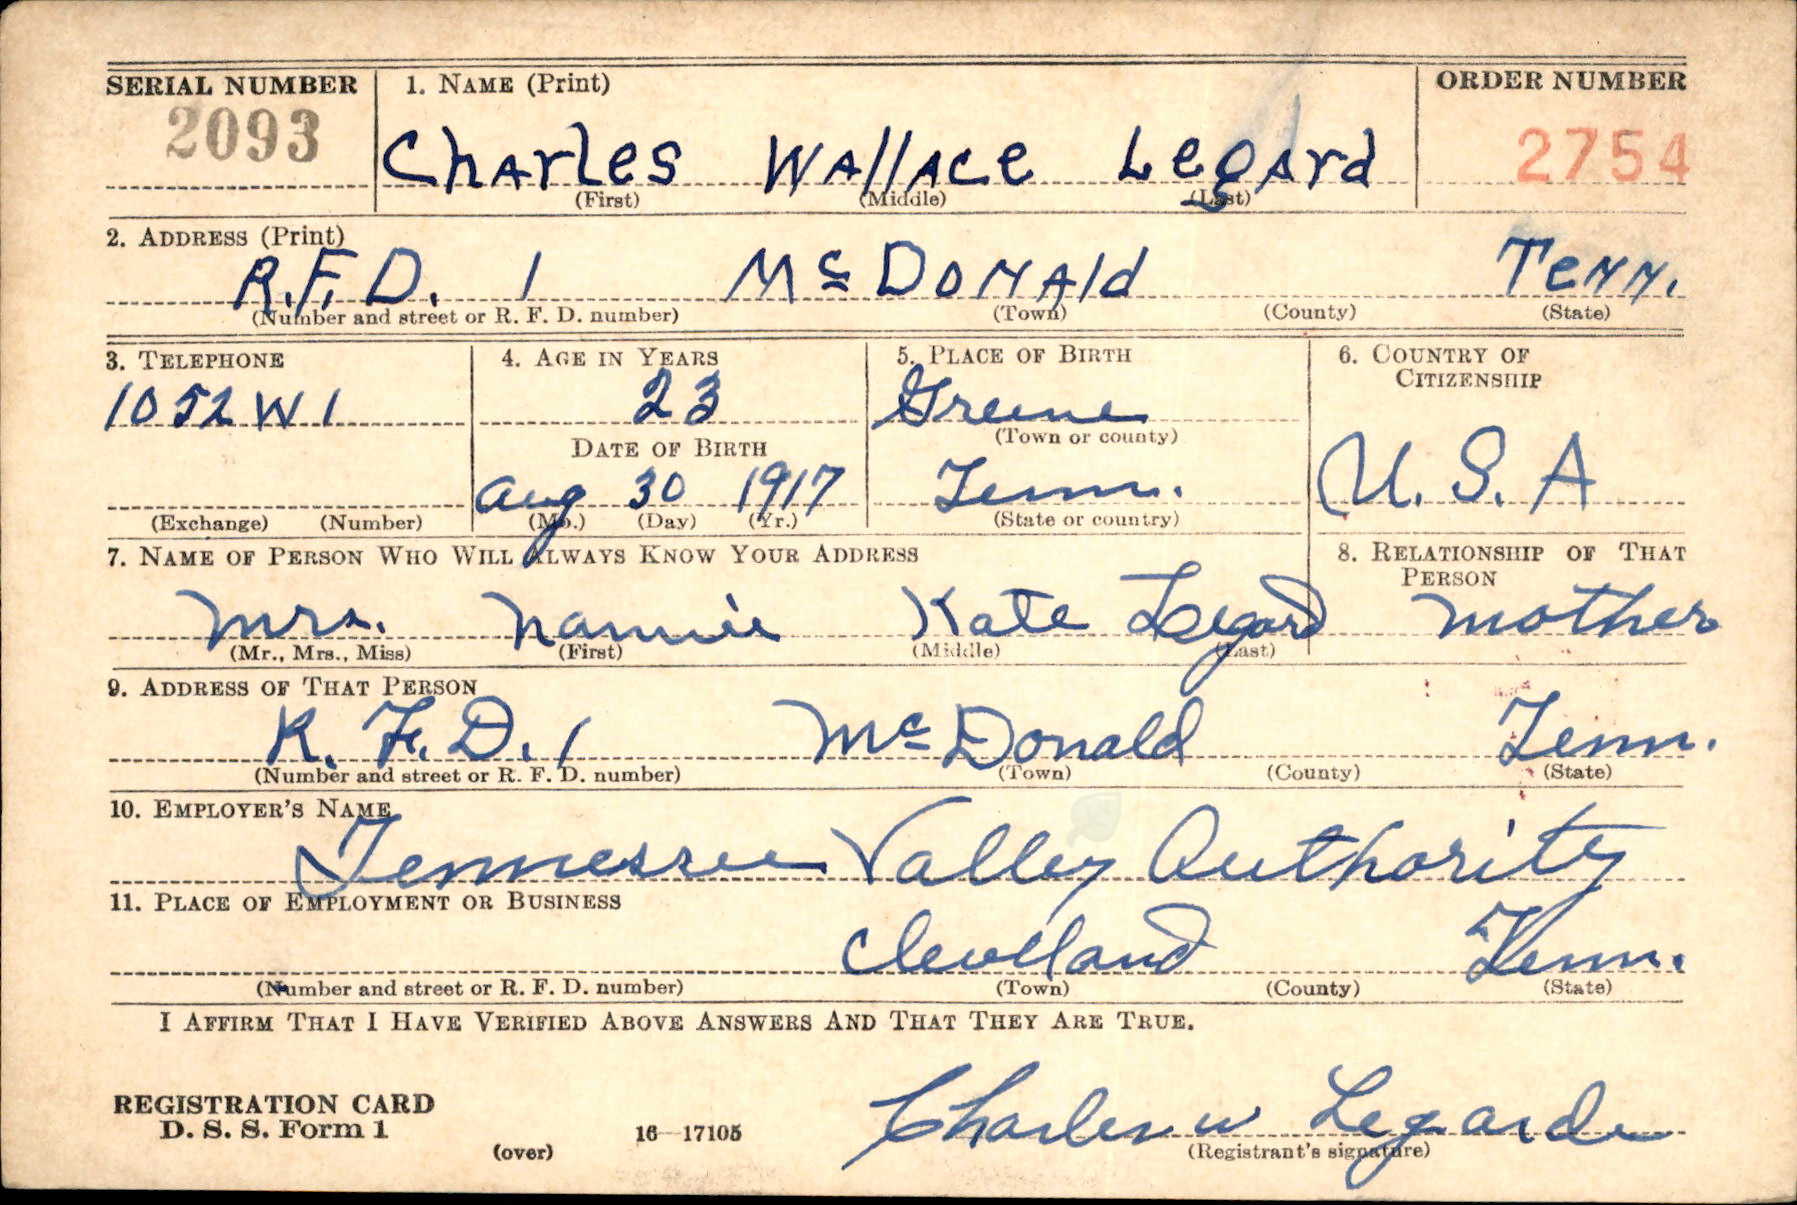 SERIAL NUMBER 1. NAME (Print) ORDER NUMBER
2093 Charles Wallace Legard 2754
(First) (Middle) (Last)
2. ADDRESS (Print)
R.F.D. 1 McDonald Tenn.
(Number and street or R. F. D. number) (Town) (County) (State)
3. TELEPHONE 4. AGE IN YEARS 5. PLACE OF BIRTH 6. COUNTRY OF CITIZENSHIP
1052 W 1 23 Greene
(Town or county)
DATE OF BIRTH
Aug 30 1917 Tenn. U.S.A
(Exchange) (Number) (Mo.) (Day) (Yr.) (State or country)
7. NAME OF PERSON WHO WILL ALWAYS KNOW YOUR ADDRESS 8. RELATIONSHIP OF THAT PERSON
Mrs. Nannie Kate Legard mother
(Mr., Mrs., Miss) (First) (Middle) (Last)
9. ADDRESS OF THAT PERSON
R.F.D. 1 McDonald Tenn.
(Number and street or R. F. D. number) (Town) (County) (State)
10. EMPLOYER'S NAME
Tennessee Valley Authority
11. PLACE OF EMPLOYMENT OR BUSINESS
Cleveland Tenn.
(Number and street or R. F. D. number) (Town) (County) (State)
I AFFIRM THAT I HAVE VERIFIED ABOVE ANSWERS AND THAT THEY ARE TRUE.
REGISTRATION CARD
D. S. S. Form 1 16—17105 Charles W Legarde
(over) (Registrant's signature)